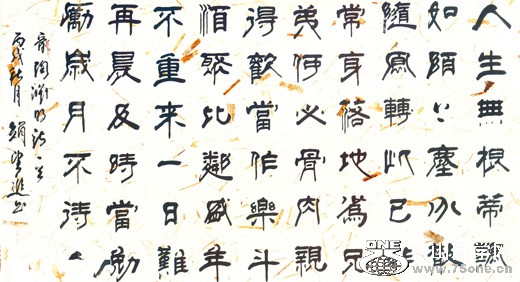 人生無根蒂飄
如陌上塵分散
隨風轉此已非
常身落地爲兄
弟何必骨肉親
得歡當作樂斗
酒聚比鄰盛年
不重來一日難
再晨及時當勉
勵歲月不待人
陶淵明詩一首
丙戌秋月 書
ONE
www.75one.com